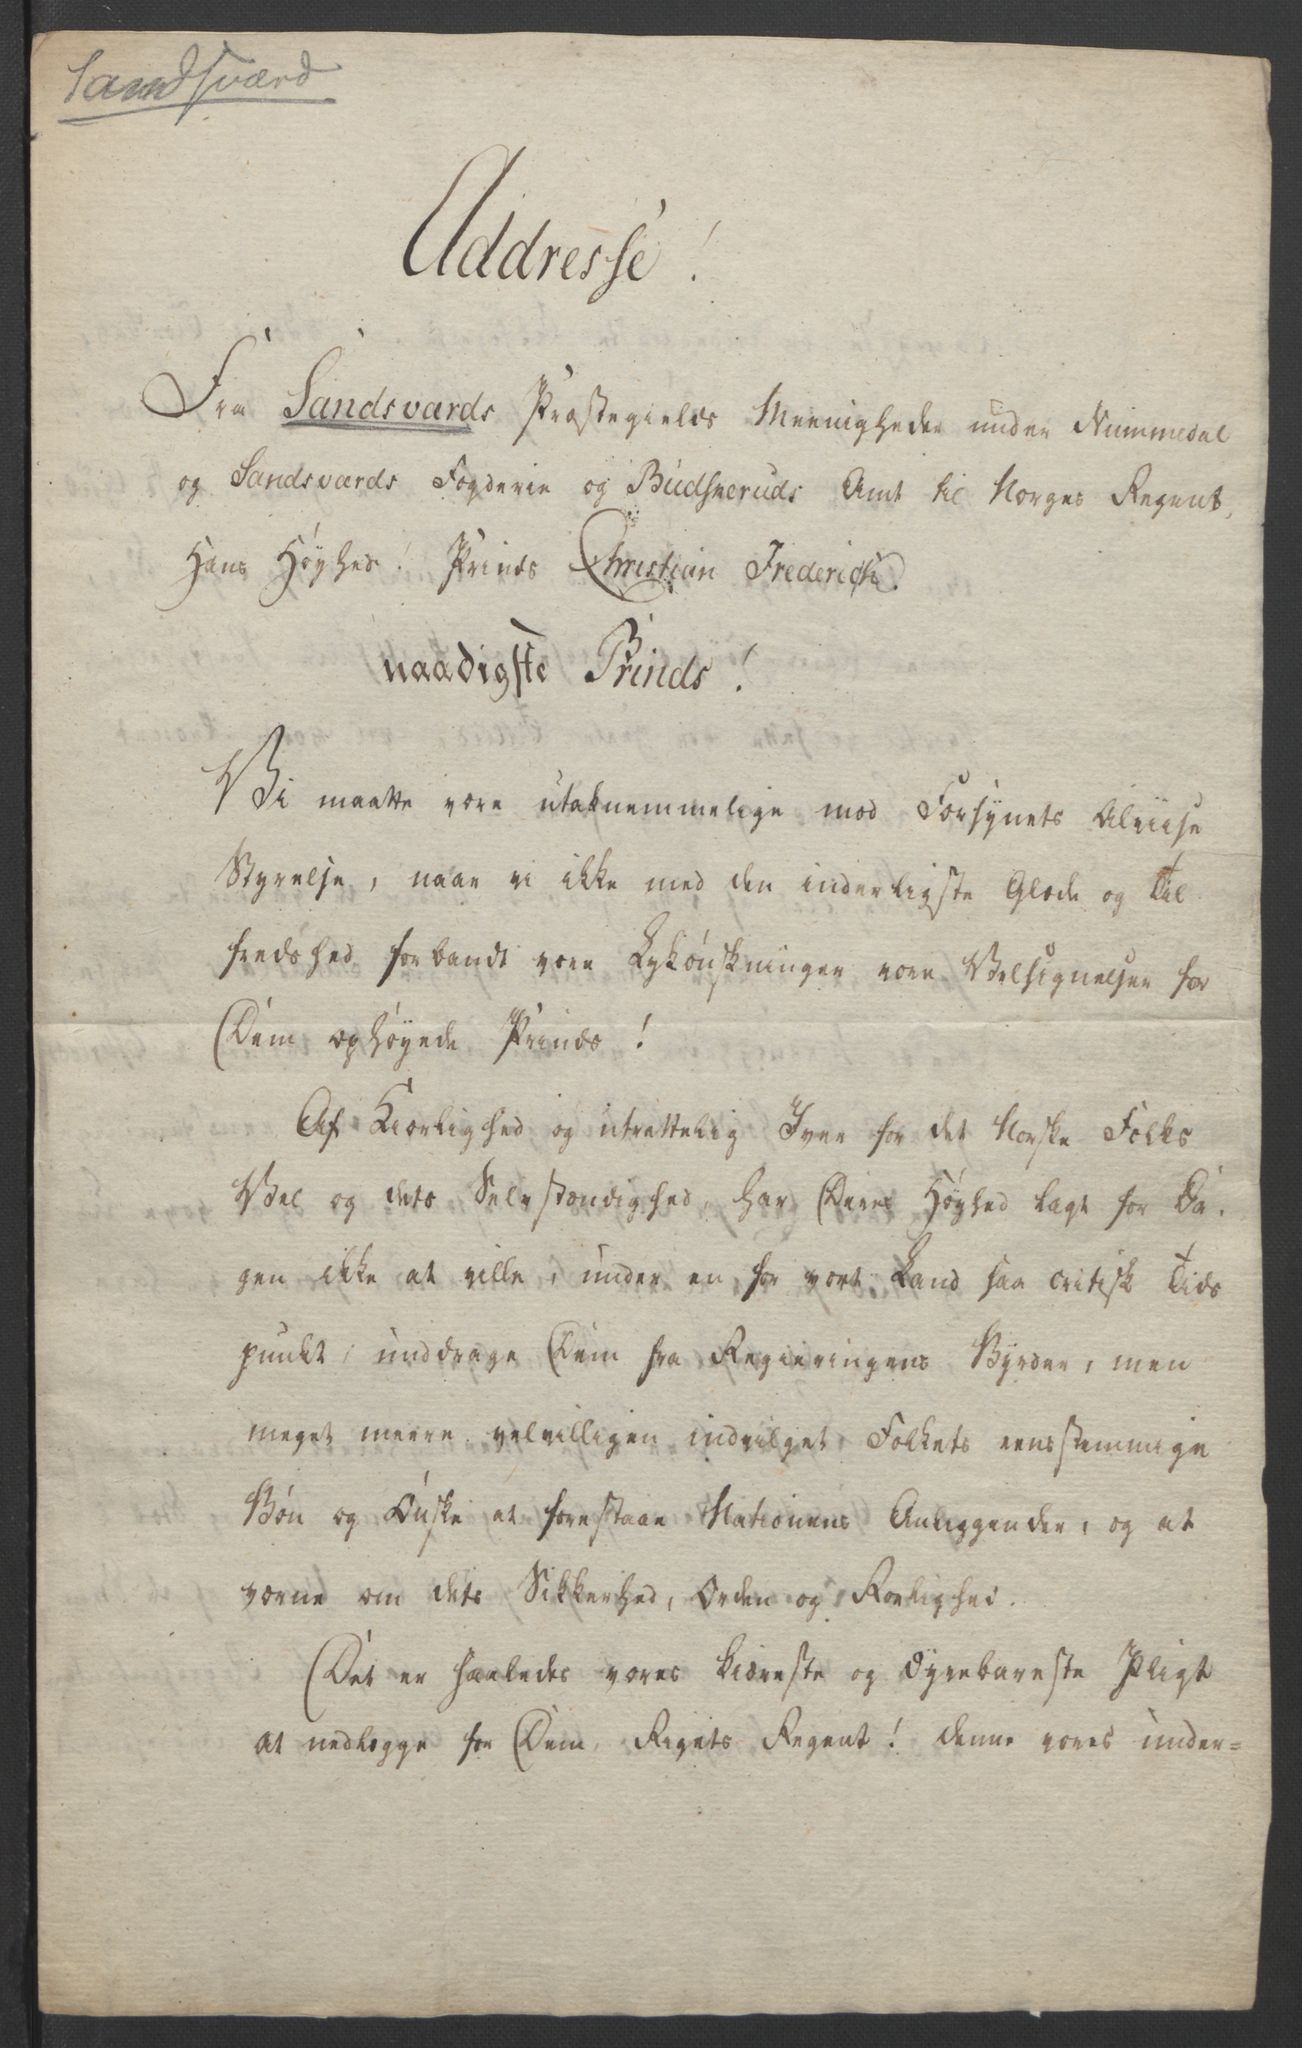 Sandsværd
Addresse!
Fra Sandsværds Præstegields Meenigheder under Nummedal
og Sandsværds Fogderie og Budskeruds Amt til Norges Regent,
Hans Høyhed! Prinds Christian Frederich.
naadigste Prinds!
Vi maatte være utaknemmelige mod Forsynets Alviise
Styrelse, naar vi ikke med den inderligste Glæde og Til
fredshed forbandt vore Lykønskninger vore Velsignelser for
Dem ophøyede Prinds!
Af Kiærlighed og utrættelig Iver for det Norske Folks
Vel og dets Selvstændighed, har Deres Høyhed lagt for Da-
gen ikke at ville, under en for vort Land saa critisk Tids
punkt, unddrage Dem fra Regieringens Byrder, men
meget meere velvilligen indvilget Folkets eensstemmige
Bøn og Ønske at forestaae Nationens Anliggender, og at
værne om dets Sikkerhed, Orden og Roelighed.
Det er saaledes vores kiæreste og dyrebareste Pligt
at nedlægge for Dem, Rigets Regent! denne vores under=